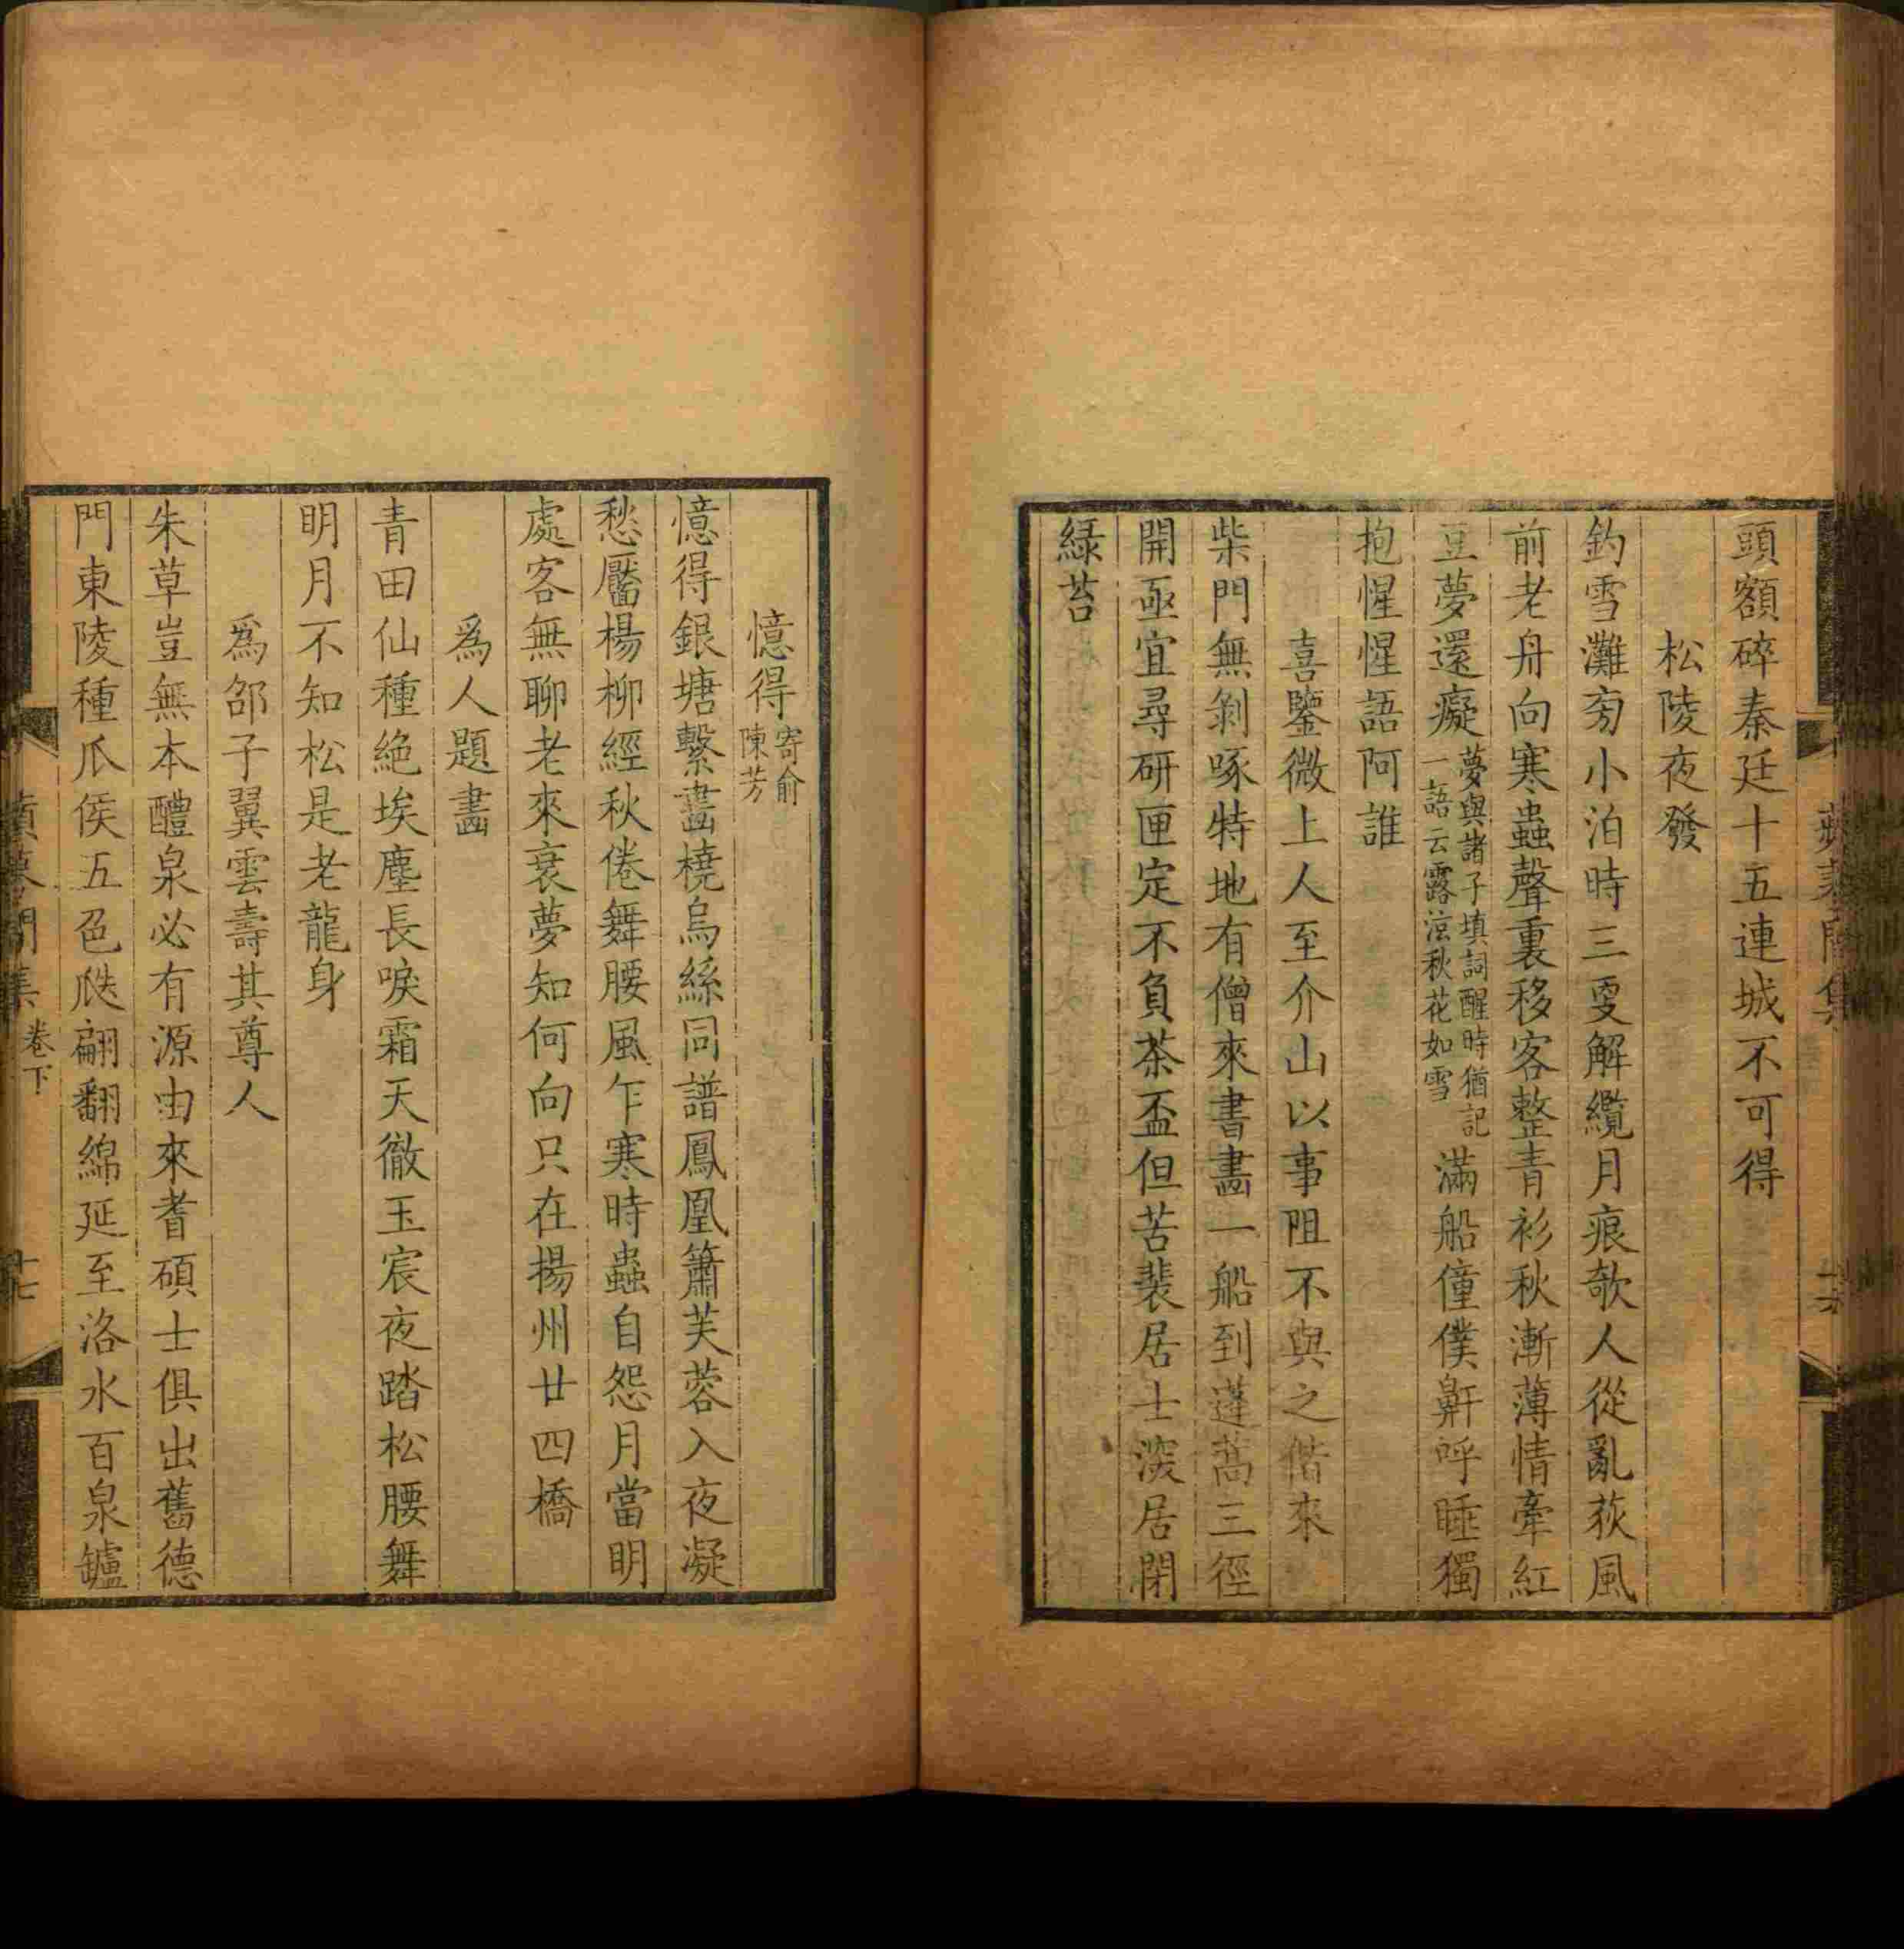 頭額碎秦廷十五連城不可得
松陵夜發
釣雪灘旁小泊時三更解纜月痕欹人從亂荻風
前老舟向寒蟲聲裏移客整青衫秋漸薄情牽紅
豆夢還癡夢與諸子填詞醒時猶記一語云露涼秋花如雪滿船僮僕鼾呼睡獨
抱惺惺語阿誰
喜鑒微上人至介山以事阻不與之偕來
柴門無剝啄特地有僧來書畫一船到蓬蒿三徑
開亟宜尋研匣定不負茶盃但苦裴居士深居閉
綠苔
憶得寄俞陳芳
憶得銀塘繫畫橈烏絲同譜鳳凰簫芙蓉入夜凝
愁靨楊柳經秋倦舞腰風乍寒時蟲自怨月當明
處客無聊老來衰夢知何向只在揚州廿四橋
爲人題畫
青田仙種絕埃塵長唳霜天徹玉宸夜踏松腰舞
明月不知松是老龍身
爲邵子翼雲壽其尊人
朱草豈無本醴泉必有源由來耆碩士俱出舊德
門東陵種瓜侯五色瓞翩翻綿延至洛水百泉鑪
卷下
十七